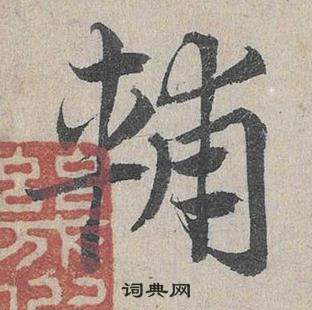 輔
词典网